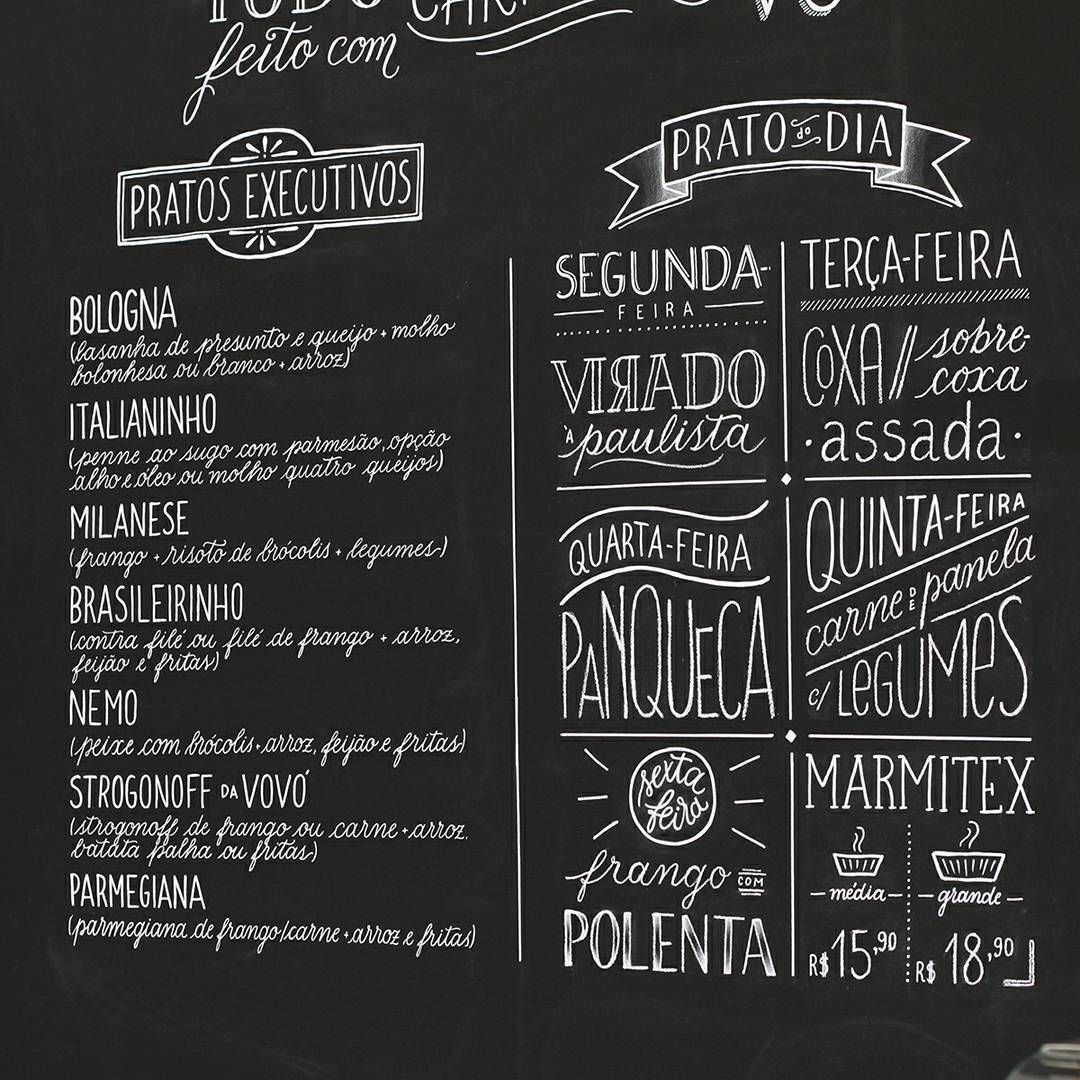 TUDO
feito com
PRATOS EXECUTIVOS
BOLOGNA
(lasanha de presunto e queijo + molho
bolonhesa ou branco + arroz)
ITALIANINHO
(penne ao sugo com parmesão, opção
alho e óleo ou molho quatro queijos)
MILANESE
(frango + risoto de brócolis + legumes)
BRASILEIRINHO
(contra filé ou filé de frango + arroz,
feijão e fritas)
NEMO
(peixe com brócolis + arroz, feijão e fritas)
STROGONOFF DA VOVÓ
(strogonoff de frango ou carne + arroz.
batata palha ou fritas)
PARMEGIANA
(parmegiana de frango/carne + arroz e fritas)
PRATO do DIA
SEGUNDA-
FEIRA
VIRADO
À paulista
TERÇA-FEIRA
COXA // sobre-
coxa
• assada •
QUARTA-FEIRA
PANQUECA
QUINTA-FEIRA
carne DE panela
c/ LEGUMES
sexta
feira
frango COM
POLENTA
MARMITEX
média
R$ 15,90
grande
R$ 18,90